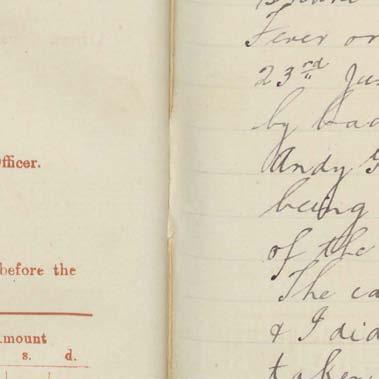 fficer.
before the
mount
s. d.
Fever or
23rd
by
Andy
being
of the
The ca
& I did
taken